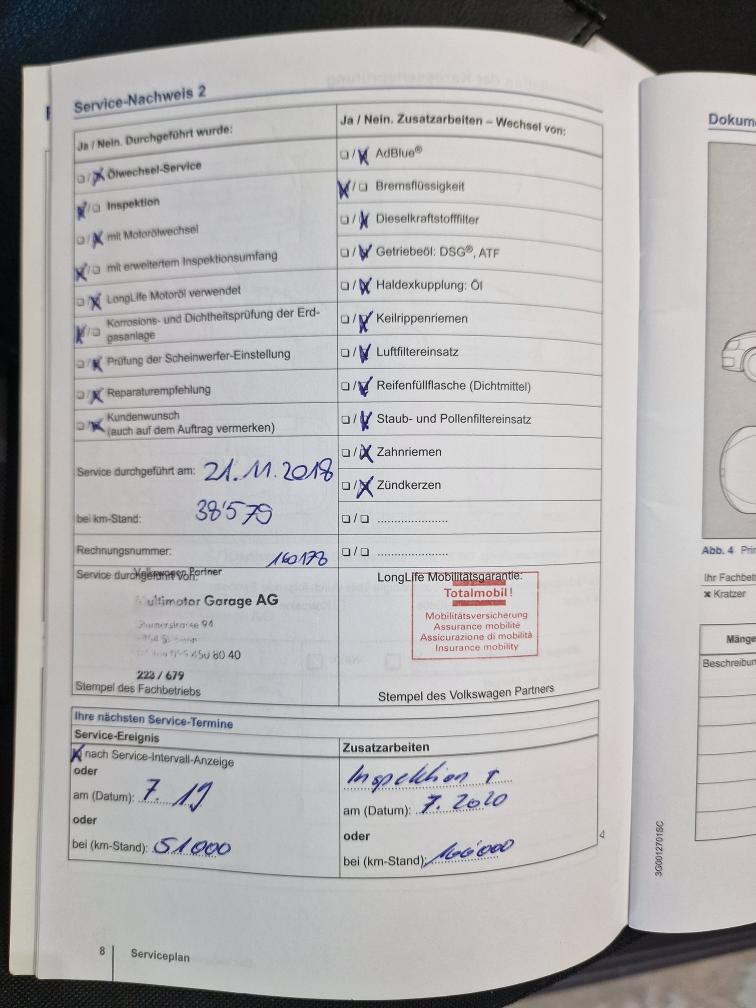 Service-Nachweis 2
Ja / Nein. Durchgeführt wurde:
☐/☒ Ölwechsel-Service
☒/☐ Inspektion
☐/☒ mit Motorölwechsel
☒/☐ mit erweitertem Inspektionsumfang
☐/☒ LongLife Motoröl verwendet
☒/☐ Korrosions- und Dichtheitsprüfung der Erd-
gasanlage
☐/☒ Prüfung der Scheinwerfer-Einstellung
☐/☒ Reparaturempfehlung
☐/☒ Kundenwunsch
(auch auf dem Auftrag vermerken)
Service durchgeführt am: 21.11.2018
bei km-Stand: 38'579
Rechnungsnummer: 160178
Service durchgeführt von:
Volkswagen Partner
ultimotor Garage AG
94
450 80 40
223 / 679
Stempel des Fachbetriebs
Ja / Nein. Zusatzarbeiten – Wechsel von:
☐/☒ AdBlue®
☒/☐ Bremsflüssigkeit
☐/☒ Dieselkraftstofffilter
☐/☒ Getriebeöl: DSG®, ATF
☐/☒ Haldexkupplung: Öl
☐/☒ Keilrippenriemen
☐/☒ Luftfiltereinsatz
☐/☒ Reifenfüllflasche (Dichtmittel)
☐/☒ Staub- und Pollenfiltereinsatz
☐/☒ Zahnriemen
☐/☒ Zündkerzen
☐/☐ .....................
☐/☐ .....................
LongLife Mobilitätsgarantie:
Totalmobil!
Mobilitätsversicherung
Assurance mobilité
Assicurazione di mobilità
Insurance mobility
Stempel des Volkswagen Partners
Ihre nächsten Service-Termine
Service-Ereignis
☒ nach Service-Intervall-Anzeige
oder
am (Datum): 7.19
oder
bei (km-Stand): 51000
Zusatzarbeiten
Inspektion
am (Datum): 7.2020
oder
bei (km-Stand): 100'000
4
8
Serviceplan
3G0012701SC
Dokum
Abb. 4 Prin
Ihr Fachbet
× Kratzer
Mänge
Beschreibun